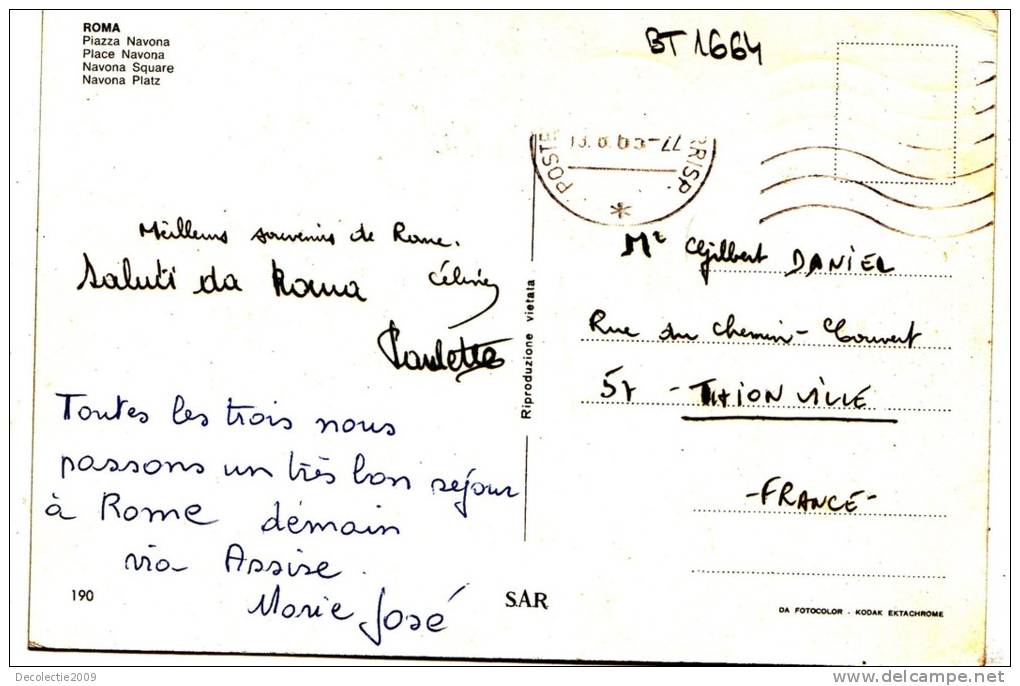 ROMA
Piazza Navona
Place Navona
Navona Square
Navona Platz
BT 1664
POSTE
RRISP.
Meilleurs souvenirs de Rome.
Céline
Saluti da Roma
Paulette
Toutes les trois nous
passons un très bon séjour
à Rome démain
via Assise.
Marie José
Riproduzione vietata
Mr Gilbert DANIEL
Rue du Chemin-Couvert
57 - THIONVILLE
-FRANCE-
190
S.A.R
DA FOTOCOLOR - KODAK EKTACHROME
Decolectie2009
www.delcampe.net